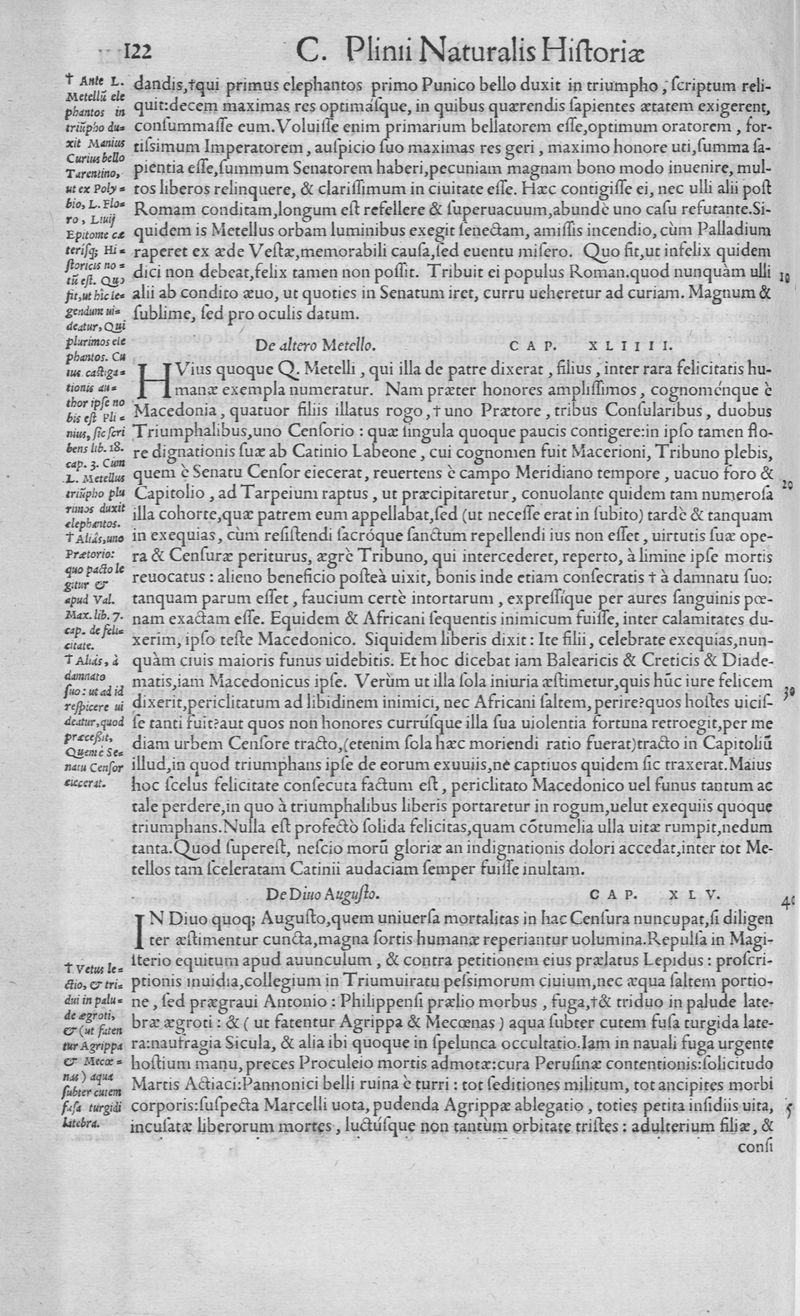 122 C. Plinii Naturalis Hiſtoriæ
† Ante L.
Metellũ ele
phantos in
triũpho du⸗
xit Manius
Curius bello
Tarentino,
ut ex Poly⸗
bio, L. Flo⸗
ro, Liuij
Epitome cæ
teriſq; Hi⸗
ſtoricis no⸗
tũ eſt. Quo
fit, ut hîc le⸗
gendum ui⸗
deatur, Qui
plurimos ele
phantos. Cu
ius caſtiga⸗
tionis au⸗
thor ipſe no
bis eſt Pli⸗
nius, ſic ſcri
bens lib. 18.
cap. 3. Cùm
L. Metellus
triũpho plu
rimos duxit
elephantos.
† Aliâs, uno
Prætorio:
quo pacto le
gitur &
apud Val.
Max. lib. 7.
cap. de feli⸗
citate.
† Aliâs, à
damnato
ſuo: ut ad id
reſpicere ui
deatur, quod
præceßit,
Quem è Se⸗
natu Cenſor
eiecerat.
† Vetus le⸗
ctio, & tri⸗
dui in palu⸗
de ægroti,
& (ut faten
tur Agrippa
& Mecœ⸗
nas) aqua
ſubter cutem
fuſa turgidi
latebra.
dandis,†qui primus elephantos primo Punico bello duxit in triumpho, ſcriptum reli-
quit:decem maximas res optimáſque, in quibus quærendis ſapientes ætatem exigerent,
conſummaſſe eum.Voluiſſe enim primarium bellatorem eſſe,optimum oratorem, for-
tiſsimum Imperatorem, auſpicio ſuo maximas res geri, maximo honore uti,ſumma ſa-
pientia eſſe,ſummum Senatorem haberi,pecuniam magnam bono modo inuenire, mul-
tos liberos relinquere, & clariſſimum in ciuitate eſſe. Hæc contigiſſe ei, nec ulli alii poſt
Romam conditam,longum eſt refellere & ſuperuacuum,abundè uno caſu refutante.Si-
quidem is Metellus orbam luminibus exegit ſenectam, amiſſis incendio, cùm Palladium
raperet ex æde Veſtæ,memorabili cauſa,ſed euentu miſero. Quo fit,ut infelix quidem
dici non debeat,felix tamen non poſſit. Tribuit ei populus Roman.quod nunquàm ulli 10
alii ab condito æuo, ut quoties in Senatum iret, curru ueheretur ad curiam. Magnum &
ſublime, ſed pro oculis datum.
De altero Metello. CAP. XLIIII.
HVius quoque Q. Metelli, qui illa de patre dixerat, filius, inter rara felicitatis hu-
manæ exempla numeratur. Nam præter honores ampliſſimos, cognoménque è
Macedonia, quatuor filiis illatus rogo,†uno Prætore, tribus Conſularibus, duobus
Triumphalibus,uno Cenſorio: quæ ſingula quoque paucis contigere:in ipſo tamen flo-
re dignationis ſuæ ab Catinio Labeone, cui cognomen fuit Macerioni, Tribuno plebis,
quem è Senatu Cenſor eiecerat, reuertens è campo Meridiano tempore, uacuo foro &
Capitolio, ad Tarpeium raptus, ut præcipitaretur, conuolante quidem tam numeroſa 20
illa cohorte,quæ patrem eum appellabat,ſed (ut neceſſe erat in ſubito) tardè & tanquam
in exequias, cùm reſiſtendi ſacróque ſanctum repellendi ius non eſſet, uirtutis ſuæ ope-
ra & Cenſuræ periturus, ægrè Tribuno, qui intercederet, reperto, à limine ipſe mortis
reuocatus: alieno beneficio poſteà uixit, bonis inde etiam conſecratis † à damnatu ſuo:
tanquam parum eſſet, faucium certè intortarum, expreſſíque per aures ſanguinis pœ-
nam exactam eſſe. Equidem & Africani ſequentis inimicum fuiſſe, inter calamitates du-
xerim, ipſo teſte Macedonico. Siquidem liberis dixit: Ite filii, celebrate exequias,nun-
quàm ciuis maioris funus uidebitis. Et hoc dicebat iam Balearicis & Creticis & Diade-
matis,iam Macedonicus ipſe. Verùm ut illa ſola iniuria æſtimetur,quis hũc iure felicem
dixerit,periclitatum ad libidinem inimici, nec Africani ſaltem,perire?quos hoſtes uiciſ- 30
ſe tanti fuit?aut quos non honores currúſque illa ſua uiolentia fortuna retroegit,per me
diam urbem Cenſore tracto,(etenim ſola hæc moriendi ratio fuerat)tracto in Capitoliũ
illud,in quod triumphans ipſe de eorum exuuiis,ne captiuos quidem ſic traxerat.Maius
hoc ſcelus felicitate conſecuta factum eſt, periclitato Macedonico uel funus tantum ac
tale perdere,in quo à triumphalibus liberis portaretur in rogum,uelut exequiis quoque
triumphans.Nulla eſt profectò ſolida felicitas,quam cõtumelia ulla uitæ rumpit,nedum
tanta.Quod ſupereſt, neſcio morũ gloriæ an indignationis dolori accedat,inter tot Me-
tellos tam ſceleratam Catinii audaciam ſemper fuiſſe inultam.
De Diuo Auguſto. CAP. XLV. 40
IN Diuo quoq; Auguſto,quem uniuerſa mortalitas in hac Cenſura nuncupat,ſi diligen
ter æſtimentur cuncta,magna ſortis humanæ reperiantur uolumina.Repulſa in Magi-
ſterio equitum apud auunculum, & contra petitionem eius prælatus Lepidus: proſcri-
ptionis inuidia,collegium in Triumuiratu peſsimorum ciuium,nec æqua ſaltem portio-
ne, ſed prægraui Antonio: Philippenſi prælio morbus, fuga,†& triduo in palude late-
bræ ægroti: & ( ut fatentur Agrippa & Mecœnas ) aqua ſubter cutem fuſa turgida late-
ra:naufragia Sicula, & alia ibi quoque in ſpelunca occultatio.Iam in nauali fuga urgente
hoſtium manu, preces Proculeio mortis admotæ:cura Peruſinæ contentionis:ſolicitudo
Martis Actiaci:Pannonici belli ruina è turri: tot ſeditiones militum, tot ancipites morbi
corporis:ſuſpecta Marcelli uota, pudenda Agrippæ ablegatio, toties petita inſidiis uita, 5
incuſatæ liberorum mortes, luctúſque non tantùm orbitate triſtes: adulterium filiæ, &
conſi